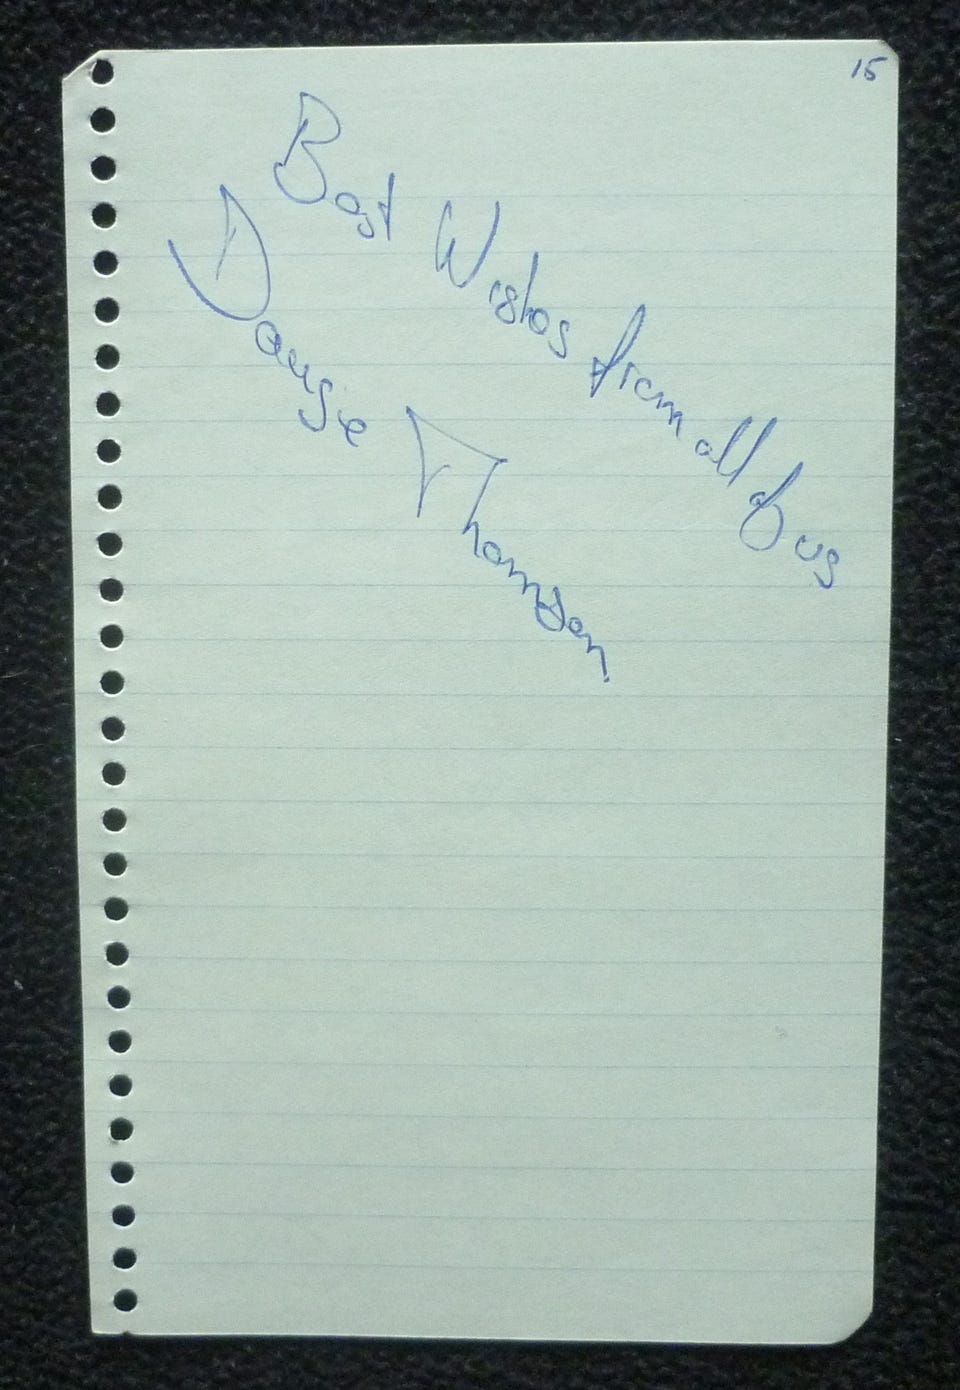 15
Best Wishes from all of us
Dougie Thomson